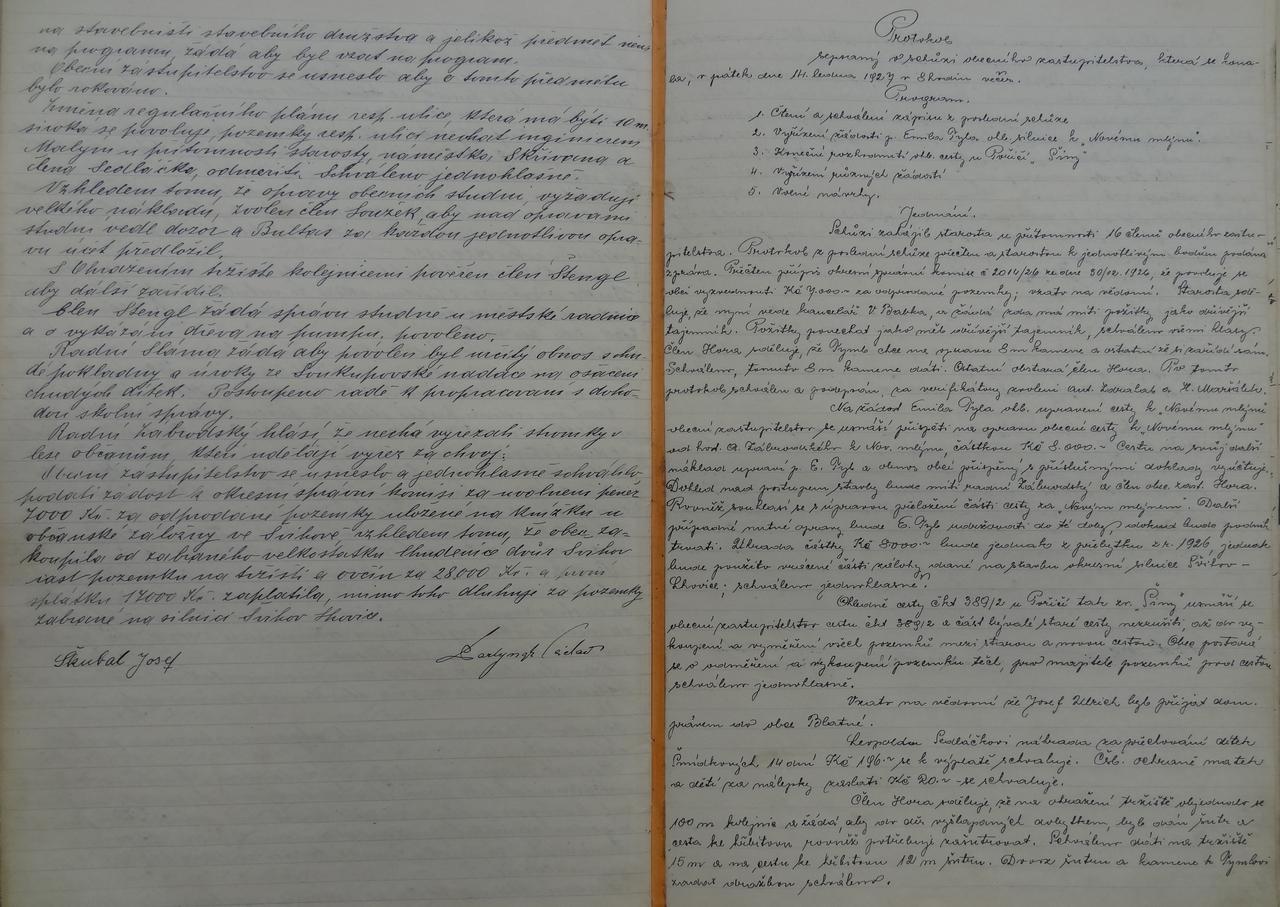 na staveništi stavebního družstva a jelikož předmět není
na programu, žádá aby byl vzat na program.
Obecní zastupitelstvo se usneslo aby o tomto předmětu
bylo rokováno.
Změna regulačního plánu resp. ulice, která má býti 10 m.
široka se povoluje, pozemky resp. ulici nechat inginerem
Malým u přítomnosti starosty, náměstka, Skřivana a
člena Sedláčka, odměriti. Schváleno jednohlasně.
Vzhledem tomu, že opravy obecních studni, vyžadují
velkého nákladu, zvolen člen Louzek, aby nad opravami
studni vedl dozor a Bultas za každou jednotlivou opra-
vu účet předložil.
S Ohrazením tržiště kolejnicemi pověřen člen Štengl
aby další zařídil.
Člen Štengl žádá správu studně u městské radnice
a o vykázání dřeva na pumpu, povoleno.
Radní Sláma žádá aby povolen byl určitý obnos z chu-
dé pokladny a úroky ze Soukupovské nadace na ošacení
chudých dítek. Postoupeno radě k propracování s doho-
dou školní správy.
Radní Zábrodský hlásí, že nechá vyřezati stromky v
lese občanům, kteří udělají výřez za chvoj.
Obecní zastupitelstvo se usneslo a jednohlasně schválilo
podati žádost k okresní správní komisi za uvolnění peněz
7000 Kč. za odprodané pozemky uložené na knížku u
občanské záložny ve Švihově vzhledem tomu, že obec za-
koupila od zabraného velkostatku Chudenice dvůr Švihov
část pozemku na tržišti a ovčín za 28.000 Kč. a první
splátku 17000 Kč. zaplatila, mimo toho dluhuje za pozemky
zabrané na silnici Švihov Lhovice.
Škubal Josef
Protokol
sepsaný o schůzi obecního zastupitelstva, která se kona-
la, v pátek dne 14. ledna 1927 v 8 hodin večer.
Program.
1. Čtení a schválení zápisu z poslední schůze
2. Vyřízení žádosti p. Emila Pyla ohl. silnice k „Novému mlýnu".
3. Konečné rozhodnutí ohl. cesty u Poříčí „Šiny"
4. Vyřízení různých žádostí
5. Volné návrhy.
Jednání.
Schůzi zahájil starosta u přítomnosti 16 členů obecního zastu-
pitelstva. Protokol z poslední schůze přečten a starostou k jednotlivým bodům podána
zpráva. Přečten přípis okresní správní komise č 2014/26 ze dne 30/12. 1926, že povoluje se
obci vyzvednouti Kč 7.000.- za odprodané pozemky; vzato na vědomí. Starosta sdě-
luje, že nyní vede kancelář V Babka, a žádá zda má míti požitky jako dřívější
tajemník. Požitky ponechat jako měl dřívější tajemník, schváleno všemi hlasy.
Člen Hora sděluje, že Vymb chce na opravu 8 m kamene a ostatní že si zařídí sám.
Schváleno, temuto 8 m kamene dáti. Ostatní obstará člen Hora. Po tomto
protokol schválen a podepsán, za verifikátory zvoleni Ant. Zdvalek a H. Maršálek.
Na žádost Emila Pyla ohl. upravení cesty k „Novému mlýnu"
obecní zastupitelstvo se usnáší přispěti na opravu obecní cesty k „Novému mlýnu"
od hosp. A. Zábrodského k Nov. mlýnu, částkou Kč 8.000.- Cestu na svůj další
náklad upraví p. E. Pyl a obnos obcí přispěný s příslušnými doklady vyúčtuje.
Dohled nad postupem stavby bude míti radní Zábrodský a člen obec. zast. Hora.
Rovněž souhlasí se s úpravou přeložení části cesty za „Novým mlýnem". Další
případné nutné opravy bude E. Pyl udržovati do té doby, dokud bude podnik
trvati. Úhrada částky Kč 8000.- bude jednak z přebytku z r. 1926, jednak
bude použito vrácené části zálohy dané na stavbu okresní silnice Švihov –
Lhovice; schváleno jednohlasně.
Ohledně cesty čkt 389/2 u Poříčí tak zv. „Šiny" usnáší se
obecní zastupitelstvo cestu čkt 389/2 a část bývalé staré cesty nezrušiti, až do vy-
koupení a vyměření všech pozemků mezi starou a novou cestou. Obec postará
se o odměření a vykoupení pozemku těch, pro majitele pozemků pod cestou
schváleno jednohlasně.
Vzato na vědomí že Josef Ulrich byl přijat dom.
právem do obce Blatné.
Leopoldu Sedláčkovi náhrada za přechování dítek
14 dní Kč 196.- se k výplatě schvaluje. Čsl. ochraně matek
a dětí za nálepky zaslati Kč 20.- se schvaluje.
Člen Hora sděluje, že na ohražení tržiště objednalo se
100 m kolejnic a žádá, aby do děr vyšlapaných dobytkem, bylo dáno šutru a
cesta ke hřbitovu rovněž potřebuje zašutrovat. Schváleno dáti na tržiště
15 m a na cestu ke hřbitovu 12 m šutru. Dovoz šutru a kamene k Vymlovi
zadat dražbou schváleno.